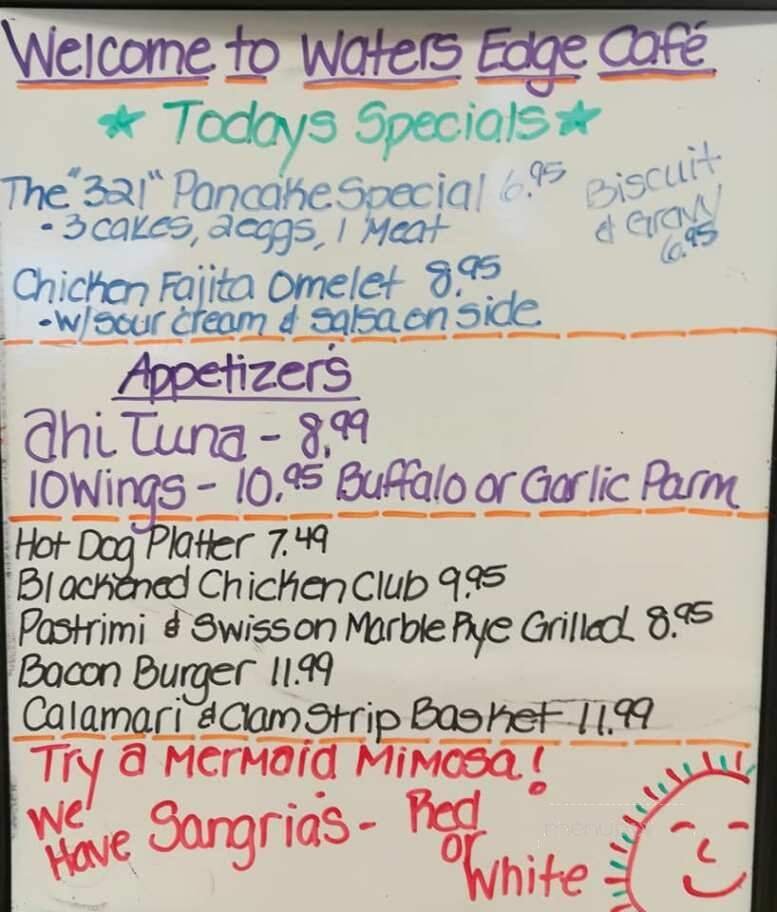 Welcome to Waters Edge Café
Todays Specials
The "321" Pancake Special 6.95
- 3 cakes, 2 eggs, 1 Meat
Biscuit
& Gravy
6.95
Chicken Fajita Omelet 8.95
- w/ sour cream & salsa on side
Appetizers
Ahi Tuna - 8.99
10 Wings - 10.95 Buffalo or Garlic Parm
Hot Dog Platter 7.49
Blackened Chicken Club 9.95
Pastrimi & Swiss on Marble Rye Grilled 8.95
Bacon Burger 11.99
Calamari & Clam Strip Basket 11.99
Try a Mermaid Mimosa!
We Have Sangria's - Red or White